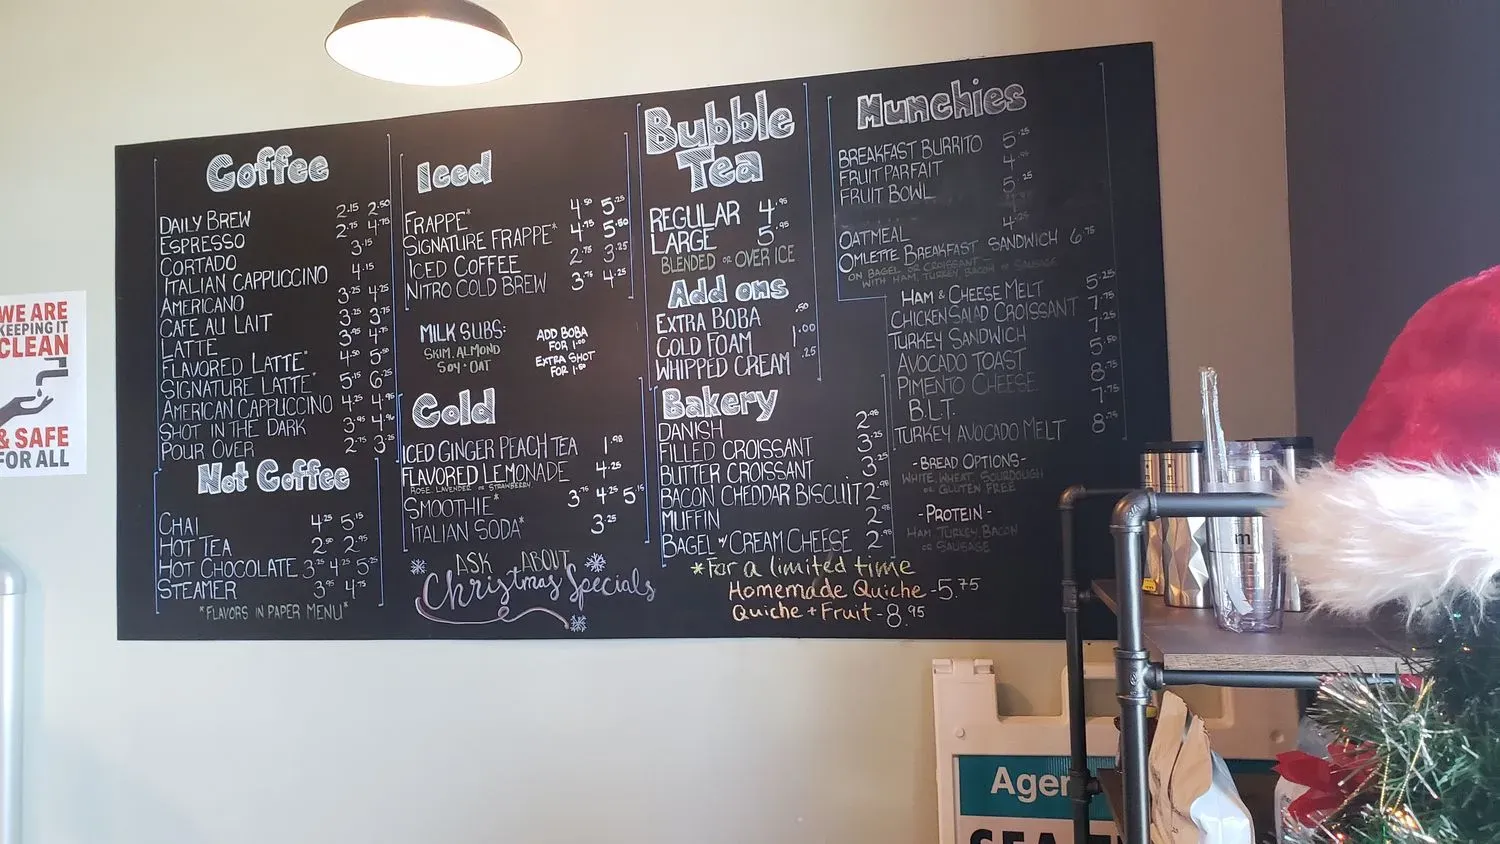 WE ARE
KEEPING IT
CLEAN
& SAFE
FOR ALL
Coffee
DAILY BREW 2.15 2.50
ESPRESSO 2.75 4.75
CORTADO 3.15
ITALIAN CAPPUCCINO 4.15
AMERICANO 3.25 4.25
CAFE AU LAIT 3.25 3.75
LATTE 3.95 4.75
FLAVORED LATTE* 4.50 5.50
SIGNATURE LATTE* 5.15 6.25
AMERICAN CAPPUCCINO 4.25 4.95
SHOT IN THE DARK 3.95 4.95
POUR OVER 2.75 3.25
Not Coffee
CHAI 4.25 5.15
HOT TEA 2.50 2.95
HOT CHOCOLATE 3.75 4.25 5.25
STEAMER 3.95 4.75
*FLAVORS IN PAPER MENU*
Iced
FRAPPE* 4.50 5.25
SIGNATURE FRAPPE* 4.75 5.50
ICED COFFEE 2.75 3.25
NITRO COLD BREW 3.75 4.25
MILK SUBS:
SKIM, ALMOND
SOY · OAT
ADD BOBA
FOR 1.00
EXTRA SHOT
FOR 1.50
Cold
ICED GINGER PEACH TEA 1.98
FLAVORED LEMONADE 4.25
ROSE, LAVENDER OR STRAWBERRY
SMOOTHIE* 3.75 4.25 5.15
ITALIAN SODA* 3.25
ASK ABOUT
Christmas Specials
Bubble
Tea
REGULAR 4.95
LARGE 5.95
BLENDED OR OVER ICE
Add ons
EXTRA BOBA .50
COLD FOAM 1.00
WHIPPED CREAM .25
Bakery
DANISH 2.98
FILLED CROISSANT 3.25
BUTTER CROISSANT 3.25
BACON CHEDDAR BISCUIT 2.98
MUFFIN 2.98
BAGEL W/ CREAM CHEESE 2.98
*For a limited time
Homemade Quiche -5.75
Quiche + Fruit - 8.95
Munchies
BREAKFAST BURRITO 5.25
FRUIT PARFAIT 4.95
FRUIT BOWL 5.25
OATMEAL 4.25
OMLETTE BREAKFAST SANDWICH 6.75
ON BAGEL OR CROISSANT
WITH HAM, TURKEY, BACON OR SAUSAGE
HAM & CHEESE MELT 5.25
CHICKEN SALAD CROISSANT 7.75
TURKEY SANDWICH 7.25
AVOCADO TOAST 5.50
PIMENTO CHEESE 8.75
B.L.T. 7.75
TURKEY AVOCADO MELT 8.75
-BREAD OPTIONS-
WHITE, WHEAT, SOURDOUGH
OR GLUTEN FREE
-PROTEIN-
HAM, TURKEY, BACON
OR SAUSAGE
m
Agen